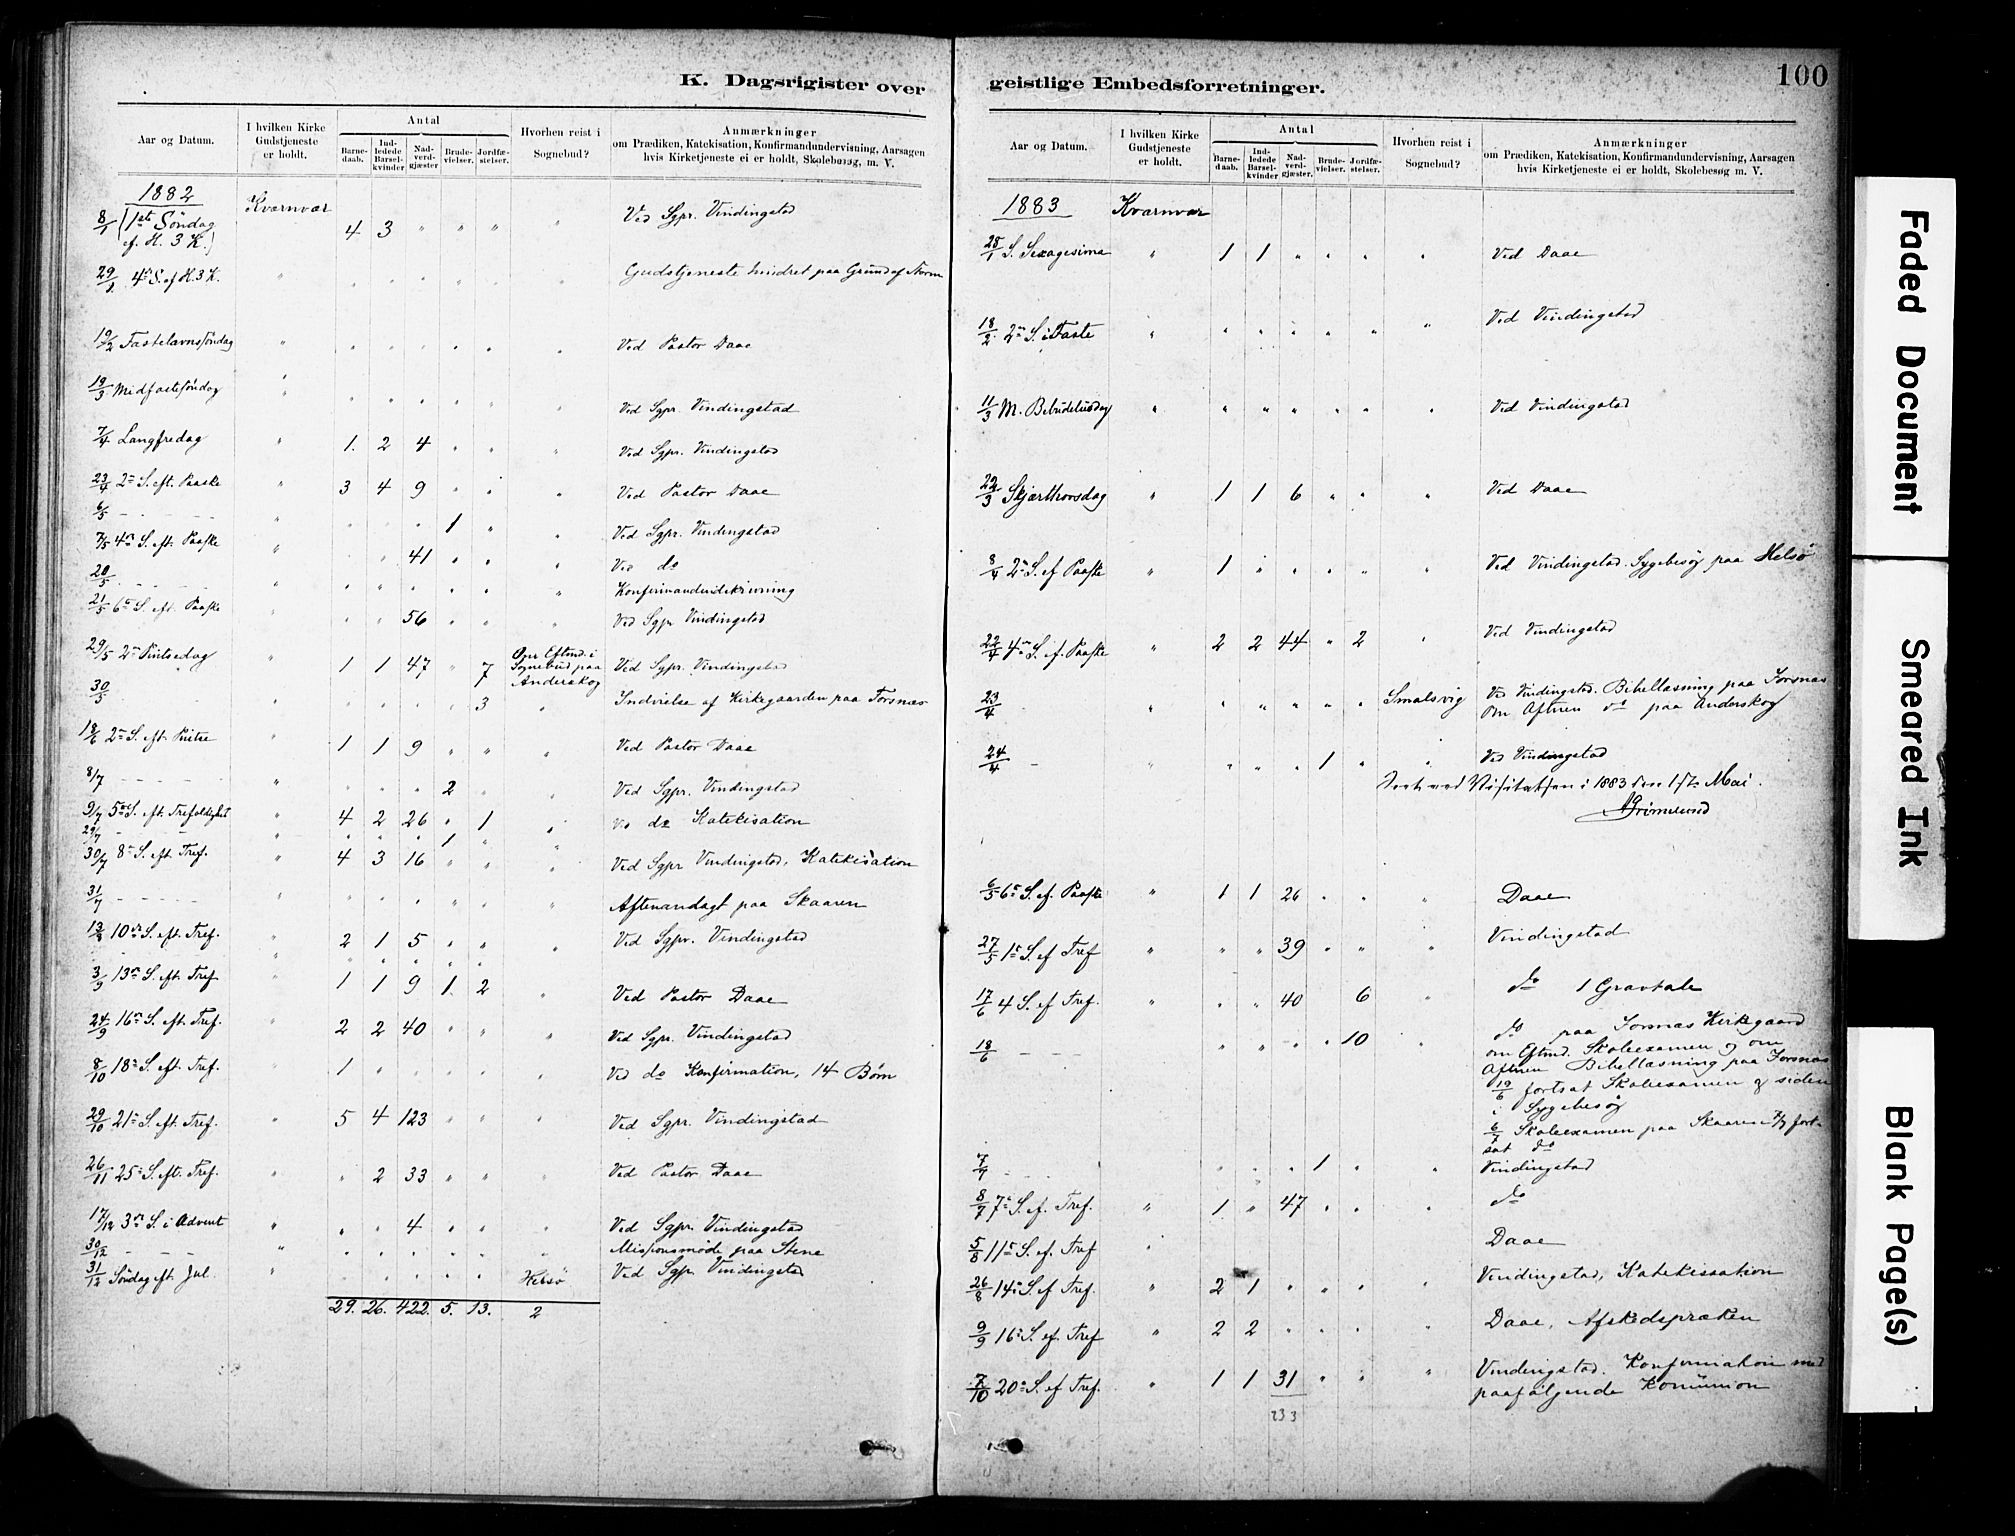 K. Dagsrigister over
Aar og Datum.
I hvilken Kirke Gudstjeneste er holdt.
Antal
Barnedaab.
Indledede Barselkvinder
Nadverdgjæster
Brudevielser.
Jordfæstelser.
Hvorhen reist i Sognebud?
Anmærkninger
om Prædiken, Katekisation, Konfirmandundervisning, Aarsagen
hvis Kirketjeneste ei er holdt, Skolebesøg, m. V.
1882 Kvarnvær
8/1 (1ste Søndag ef. H. 3 K.) 4 3 " " " " Ved Sgpr. Vindingstad
29/1 4de S. ef H. 3 K. " " " " " " " Gudstjeneste hindret paa Grund af Storm
19/2 Fastelavnssöndag " " " " " " " Ved Pastor Daae
19/3 Midfastesöndag " " " " " " " Ved Sgpr. Vindingstad
7/4 Langfredag " 1. 2 4 " " " Ved Sgpr. Vindingstad
23/4 2n S. eft. Paaske " 3 4 9 " " " Ved Pastor Daae
6/5 - - - " " " " 1 " " Ved Sgpr. Vindingstad
7/5 4n S. eft. Paaske " " " 41 " " " Ved do
20/5 - - - " " " " " " " Konfirmandindskrivning
21/5 6n S. eft. Paaske " " " 56 " " " Ved Sgpr Vindingstad
29/5 2n Pintsedag " 1 1 47 " 7 Om Eftmd. i Sognebud paa Anderskog Ved Sgpr. Vindingstad
30/5 " " " " " 3 " Indvielse af Kirkegaarden paa Forsnæs
18/6 2n S. eft. Pintse " 1 1 9 " " " Ved Pastor Daae
8/7 - - - " " " " 2 " " Ved Sgpr. Vindingstad
9/7 5te S. eft. Trefoldighet " 4 2 26 " 1 " Ved do Katekisation
29/7 - - " " " " 1 " "
30/7 8n S. eft. Tref. " 4 3 16 " " " Ved Sgpr Vindingstad, Katekisation
31/7 - - - " " " " " " " Aftenandagt paa Skaaren
13/8 10n S. eft. Tref. " 2 1 5 " " " Ved Sgpr. Vindingstad
3/9 13n S. eft. Tref " 1 1 9 1. 2 " Ved Pastor Daae
24/9 16n S. eft. Tref. " 2 2 40 " " " Ved Sgpr. Vindingstad
8/10 18n S. eft. Tref. " 1 " " " " " Ved do Konfirmation, 14 Børn
29/10 21n S. eft. Tref. " 5 4 123 " " " Ved Sgpr. Vindingstad
26/11 25n S. eft. Tref. " " 2 33 " " " Ved Pastor Daae
17/12 3n S. i Advent " " " 4 " " " Ved Sgpr. Vindingstad
30/12 - - " " " " " " " Misjonsmøde paa Stene
31/12 Söndag eft. Jul " " " " " " Helsö Ved Sgpr. Vindingstad
29. 26. 422. 5. 13. 2
geistlige Embedsforretninger.
100
Aar og Datum.
I hvilken Kirke Gudstjeneste er holdt.
Antal
Barnedaab.
Indledede Barselkvinder
Nadverdgjæster.
Brudevielser.
Jordfæstelser.
Hvorhen reist i Sognebud?
Anmærkninger
om Prædiken, Katekisation, Konfirmandundervisning, Aarsagen
hvis Kirketjeneste ei er holdt, Skolebesøg m. V.
1883 Kvarnvær
28/1 S. Sexagesima " 1 1 " " " " Ved Daae
18/2 2n S. i Faste " " " " " " " Ved Vindingstad
11/3 M. Bebudelsesdag " " " " " " " Ved Vindingstad
22/3 Skjærthorsdag " 1 1 6 " " " Ved Daae
8/4 2n S. ef Paaske " 1 " " " " " Ved Vindingstad. Sygebesög paa Helsö
22/4 4n S. ef. Paaske " 2 2 44 " 2 " Ved Vindingstad
23/4 - " " " " " " Smalsvig Ved Vindingstad. Bibellæsning paa Forsnæs
Om Aftnen do paa Anderskog
24/4 - " " " " 1 " " Ved Vindingstad
Seet ved Visitatsen i 1883 den 1ste Mai.
Grimelund
6/5 6n S. ef. Paaske " 1 1 26 " " " Daae
27/5 1n S. ef Tref " " " 39 " " " Vindingstad
17/6 4 S. ef Tref. " " " 40 6 " do 1 Gravtale
18/6 - - " " " " 10 " do paa Forsnæs Kirkegaard
om Eftmd. Skoleexamen og om
Aftnen Bibellæsning paa Forsnæs
19/6 fortsat Skoleexamen og siden
i Sygebesög
6/7 Skoleexamen paa Skaaren 7/7 fort-
sat do
7/7 - " " " " 1 " " Vindingstad
8/7 7n S. ef. Tref. " 1 " 47 " " " do
5/8 11n S. ef. Tref " Daae
26/8 14n S. ef Tref. " 2 1 " " " Vindingstad, Katekisation
9/9 16n S. ef Tref " 2 2 " " " " Daae, Afskedspræken
7/10 20n S. ef Tref. " 1 1 31 " " " Vindingstad. Konfirmation med
paafölgende Komunion
233
Faded Document
Smeared Ink
Blank Page(s)